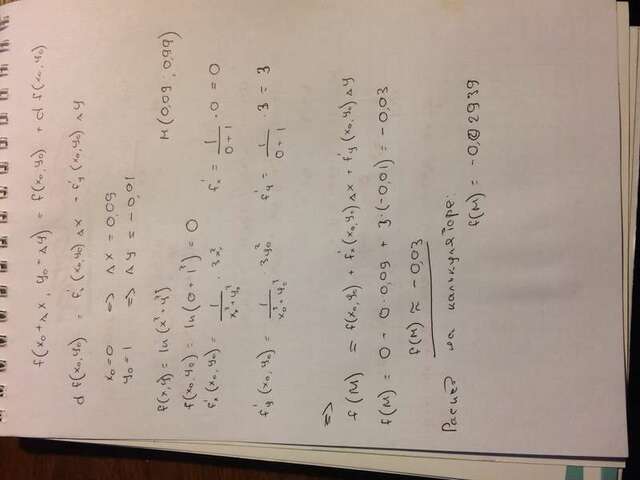 f(x₀+Δx, y₀-Δy) = f(x₀,y₀) + d f(x₀,y₀)
d f(x₀,y₀) = f'ₓ(x₀,y₀) Δx - f'ᵧ(x₀,y₀) Δy
x₀=0 => Δx = 0,09
y₀=1 => Δy = -0,01
f(x,y) = ln(x³-y³) M(0,09; 0,99)
f(x₀,y₀) = ln(0+1³) = 0
f'ₓ(x₀,y₀) = 1/(x₀³+y₀³) · 3x₀² f'ₓ = 1/(0+1) · 0 = 0
f'ᵧ(x₀,y₀) = 1/(x₀³+y₀³) · 3y₀² f'ᵧ = 1/(0+1) · 3 = 3
=>
f(M) = f(x₀,y₀) + f'ₓ(x₀,y₀) Δx + f'ᵧ(x₀,y₀) Δy
f(M) = 0 - 0·0,09 + 3·(-0,01) = -0,03
f(M) ≈ -0,03
Расчет на калькуляторе:
f(M) = -0,02939